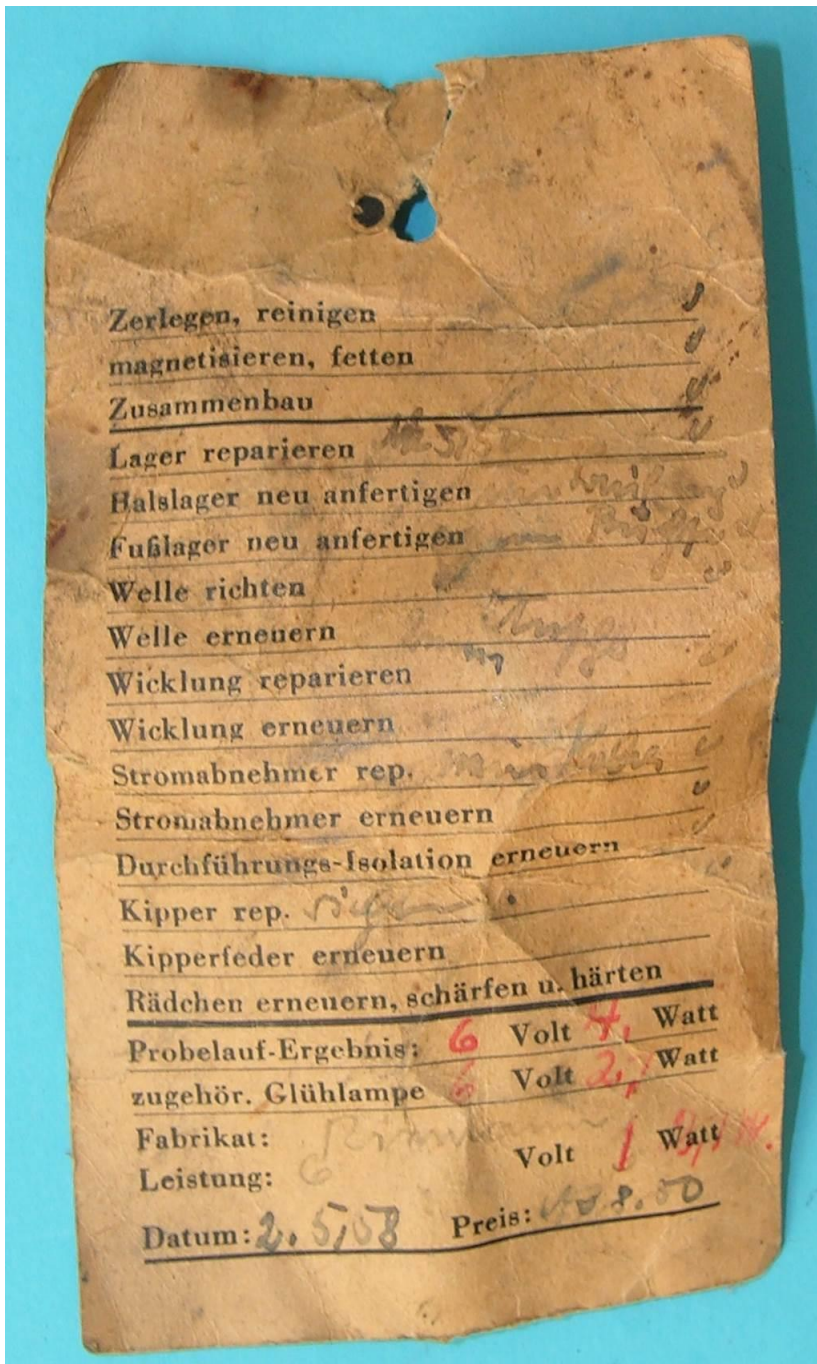 Zerlegen, reinigen
magnetisieren, fetten
Zusammenbau
Lager reparieren
Halslager neu anfertigen
Fußlager neu anfertigen
Welle richten
Welle erneuern
Wicklung reparieren
Wicklung erneuern
Stromabnehmer rep.
Stromabnehmer erneuern
Durchführungs-Isolation erneuern
Kipper rep.
Kipperfeder erneuern
Rädchen erneuern, schärfen u. härten
Probelauf-Ergebnis: 6 Volt 4, Watt
zugehör. Glühlampe 6 Volt 2,1 Watt
Fabrikat:
Leistung: 6 Volt Watt
Datum: 2.5,58 Preis: 8.50